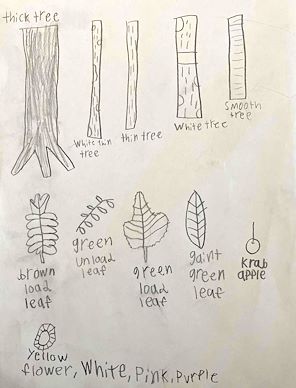 thick tree
White thin
tree
thin tree
White tree
Smooth
tree
brown
load
leaf
green
unload
leaf
green
load
leaf
gaint
green
leaf
Krab
apple
yellow
flower, White, Pink, Purple